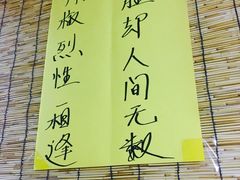 椒烈性一相逢
胜却人间无数